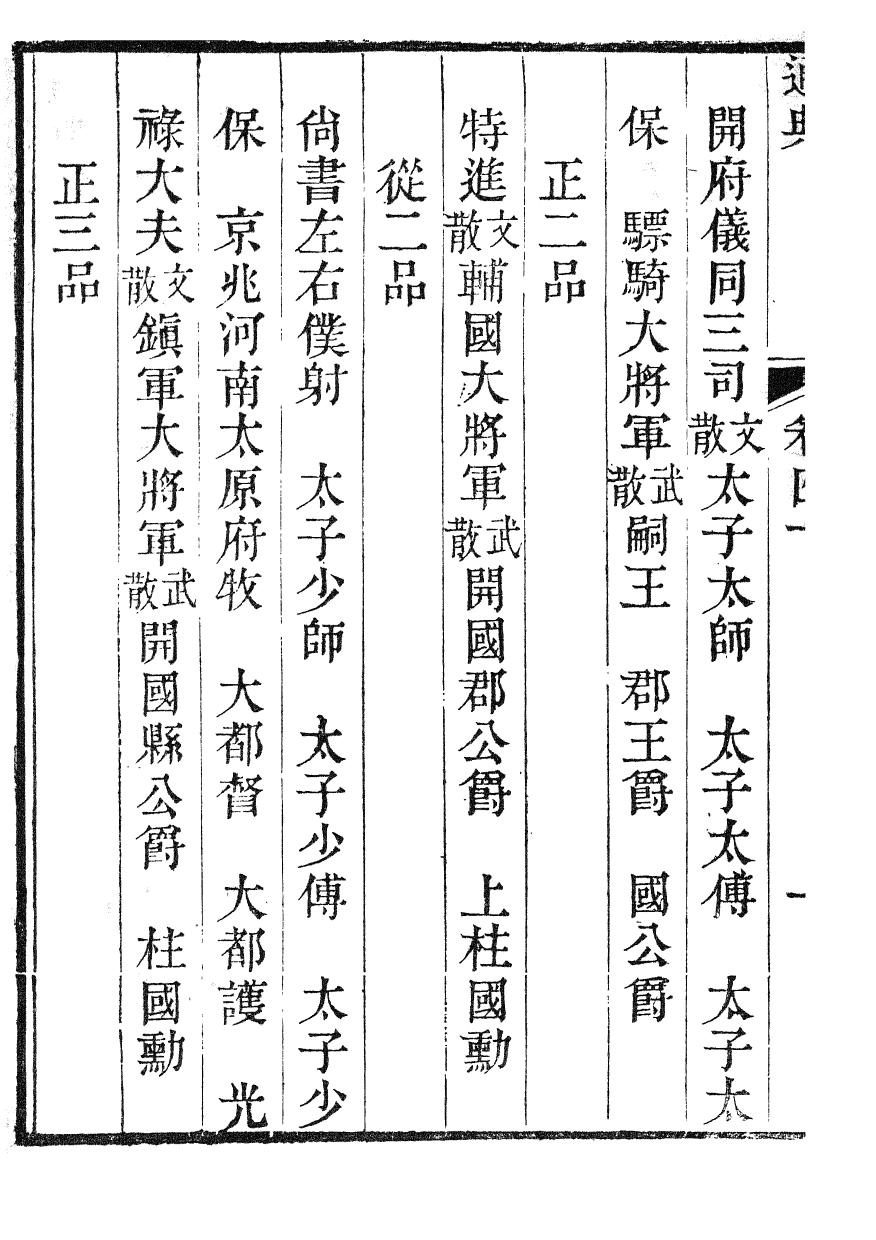 通典 卷四十 一
開府儀同三司文散太子太師 太子太傅 太子太
保 驃騎大將軍武散嗣王 郡王爵 國公爵
正二品
特進文散輔國大將軍武散開國郡公爵 上柱國勳
從二品
尙書左右僕射 太子少師 太子少傅 太子少
保 京兆河南太原府牧 大都督 大都護 光
祿大夫文散鎭軍大將軍武散開國縣公爵 柱國勳
正三品